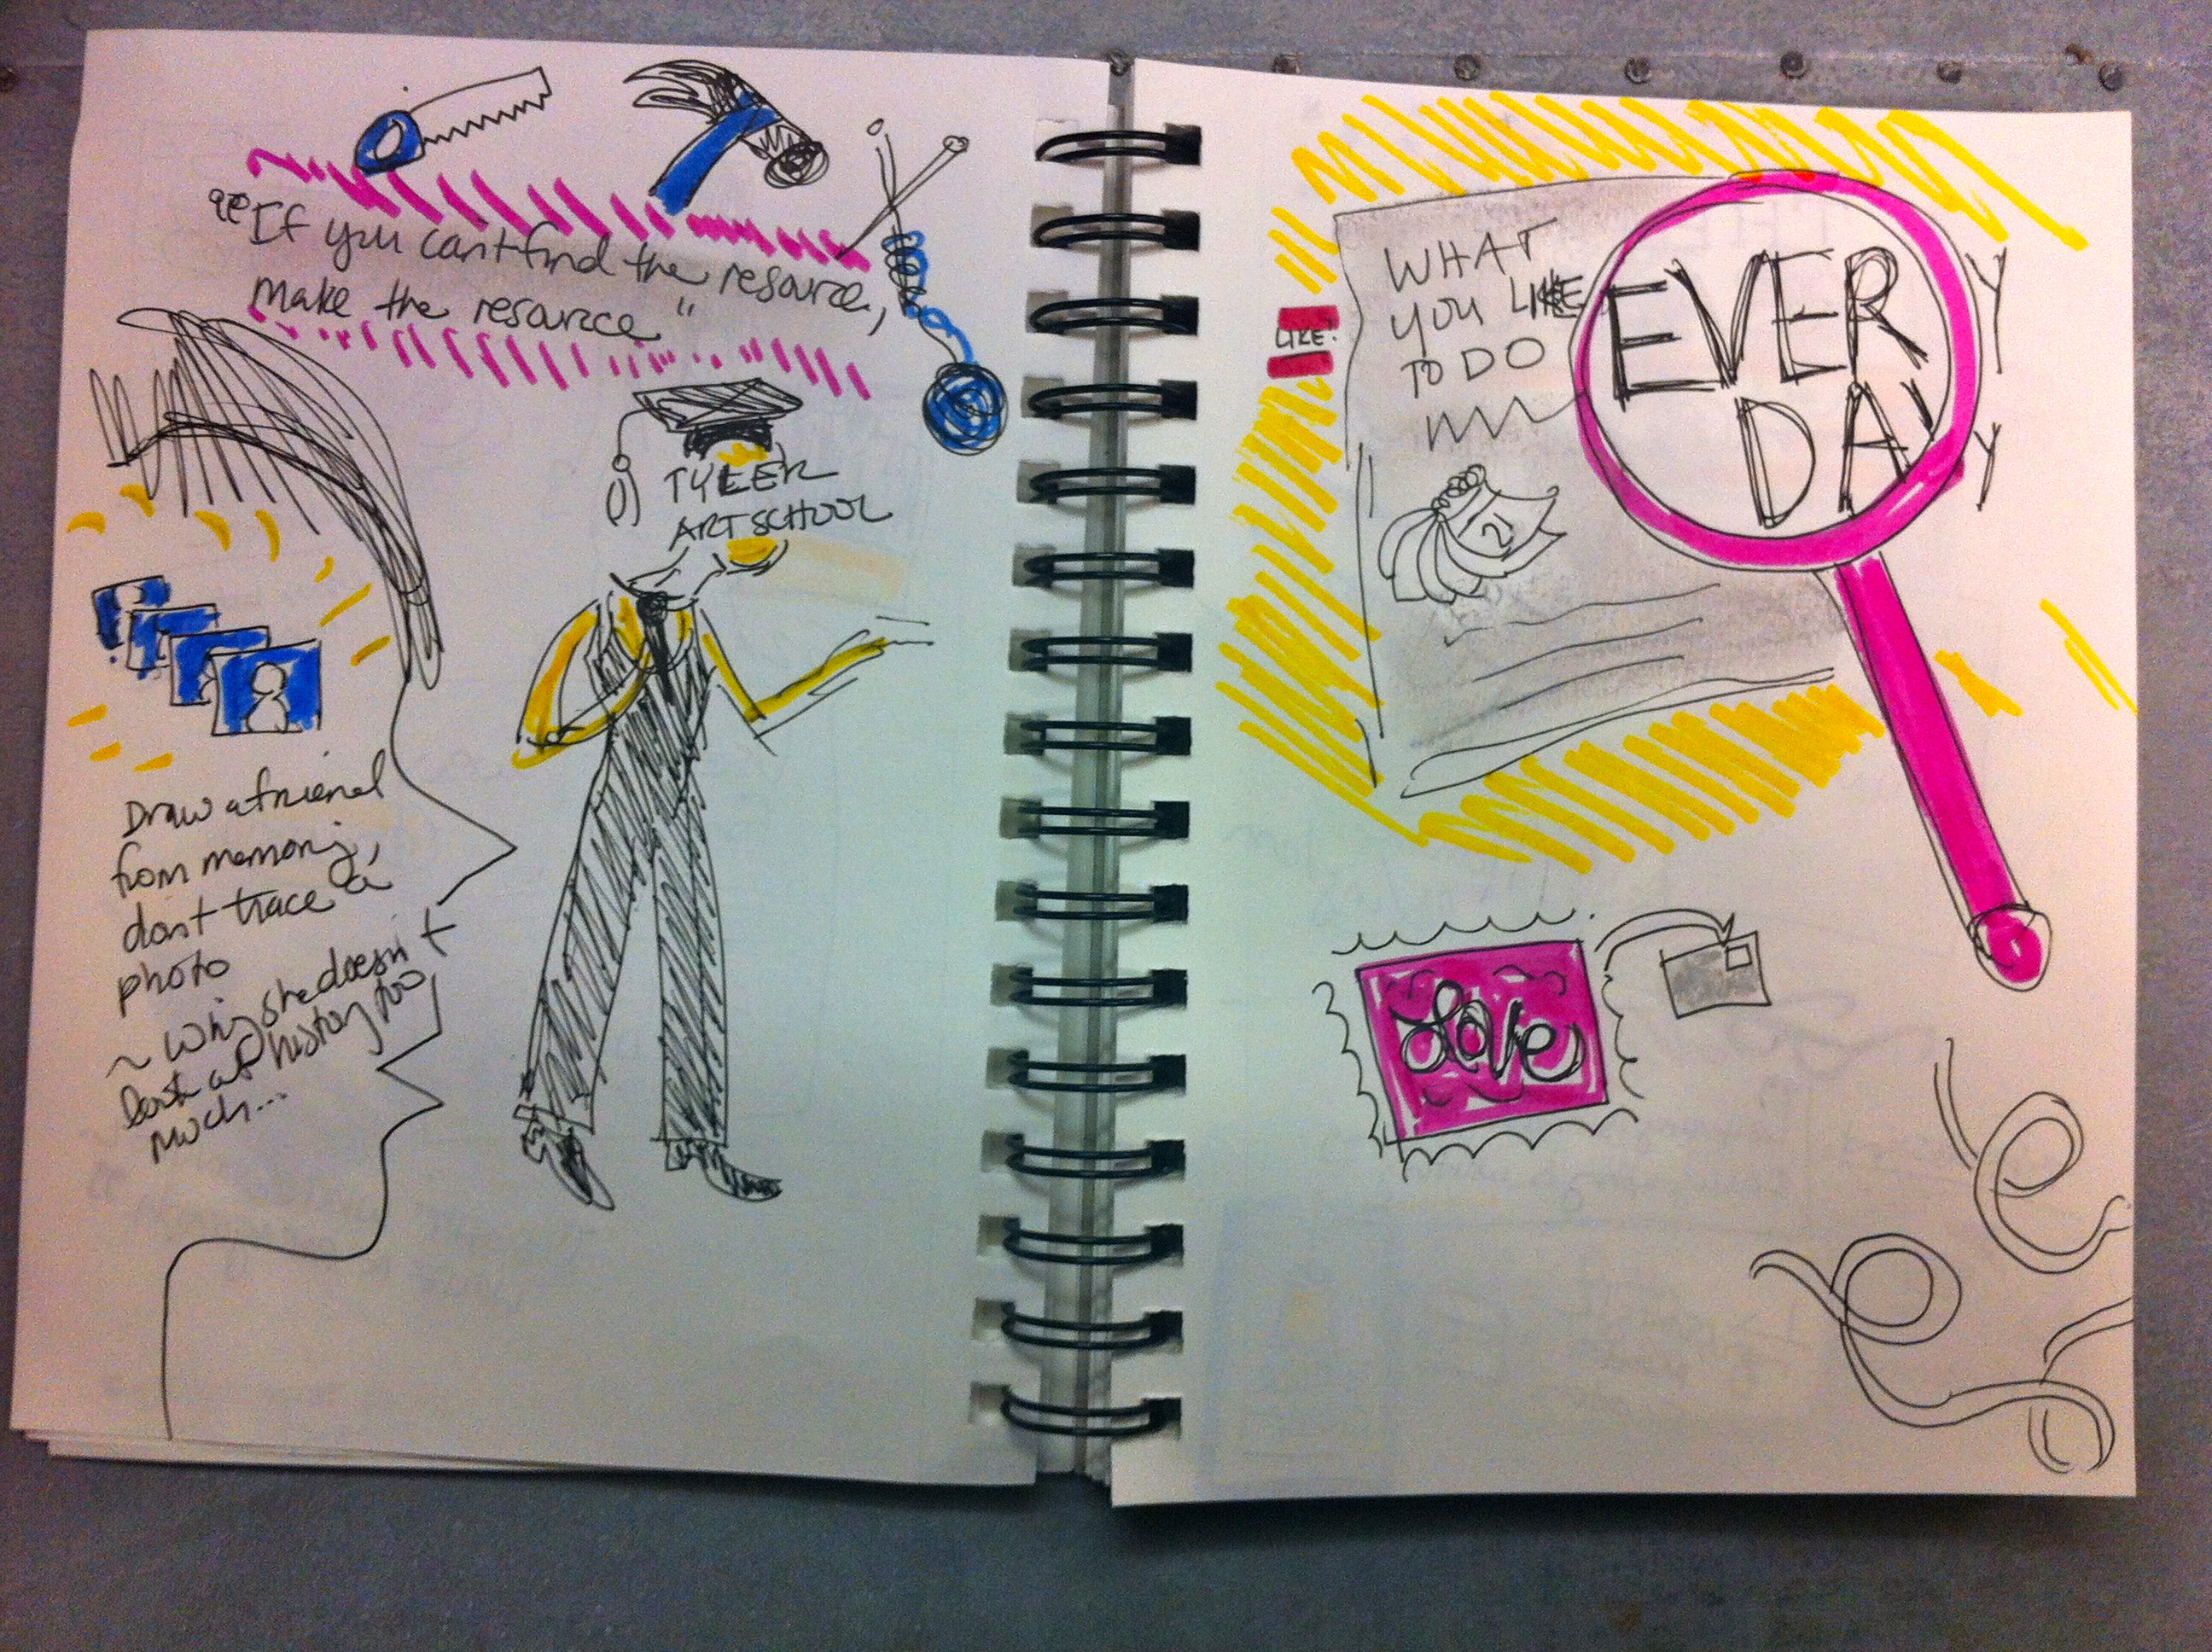 "If you can't find the resource,
make the resource"
TYLER
ART SCHOOL
Draw a friend
from memory,
don't trace a
photo
~ Why she doesn't
look at history too
much...
WHAT
YOU LIKE
TO DO
EVERY
DAY
LIKE!
21
Love